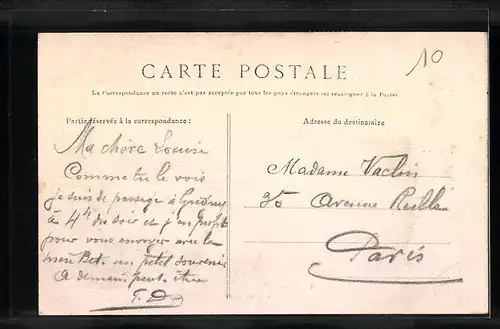 10
CARTE POSTALE
La Correspondance au recto n'est pas acceptée par tous les pays étrangers (se renseigner à la Poste)
Partie réservée à la correspondance :
Ma chère Louise
Comme tu le vois
je suis de passage à
à 4h du soir et j'en profite
pour vous envoyer
un petit souvenir
A demain peut être
Adresse du destinataire
Madame
35 Avenue
Paris